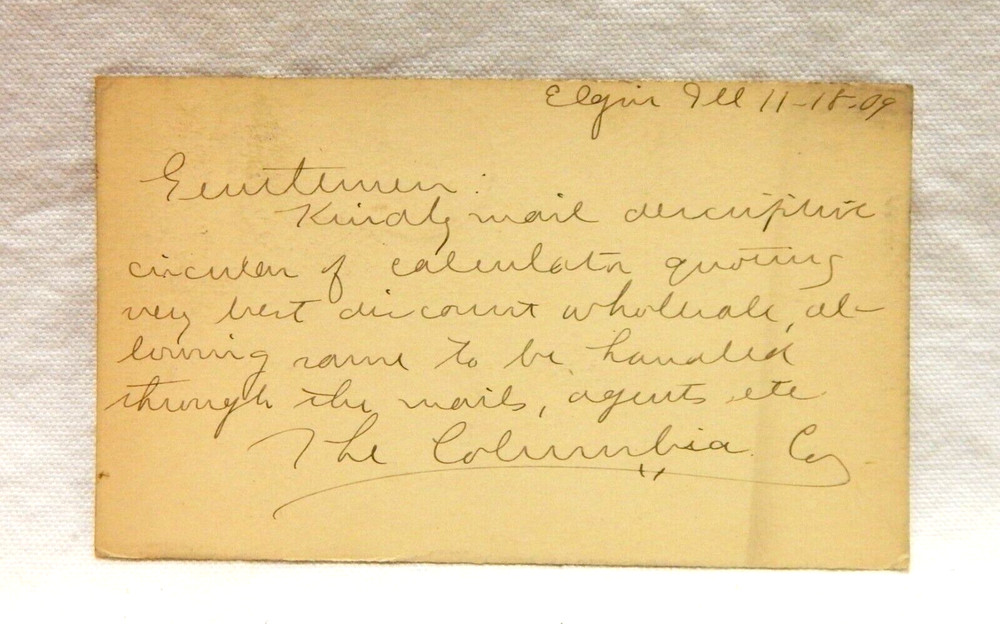 Elgin Ill 11-18-09
Gentlemen:
Kindly mail descriptive
circular of calculator quoting
very best discount wholesale, al-
lowing same to be handled
through the mails, agents etc
The Columbia Co